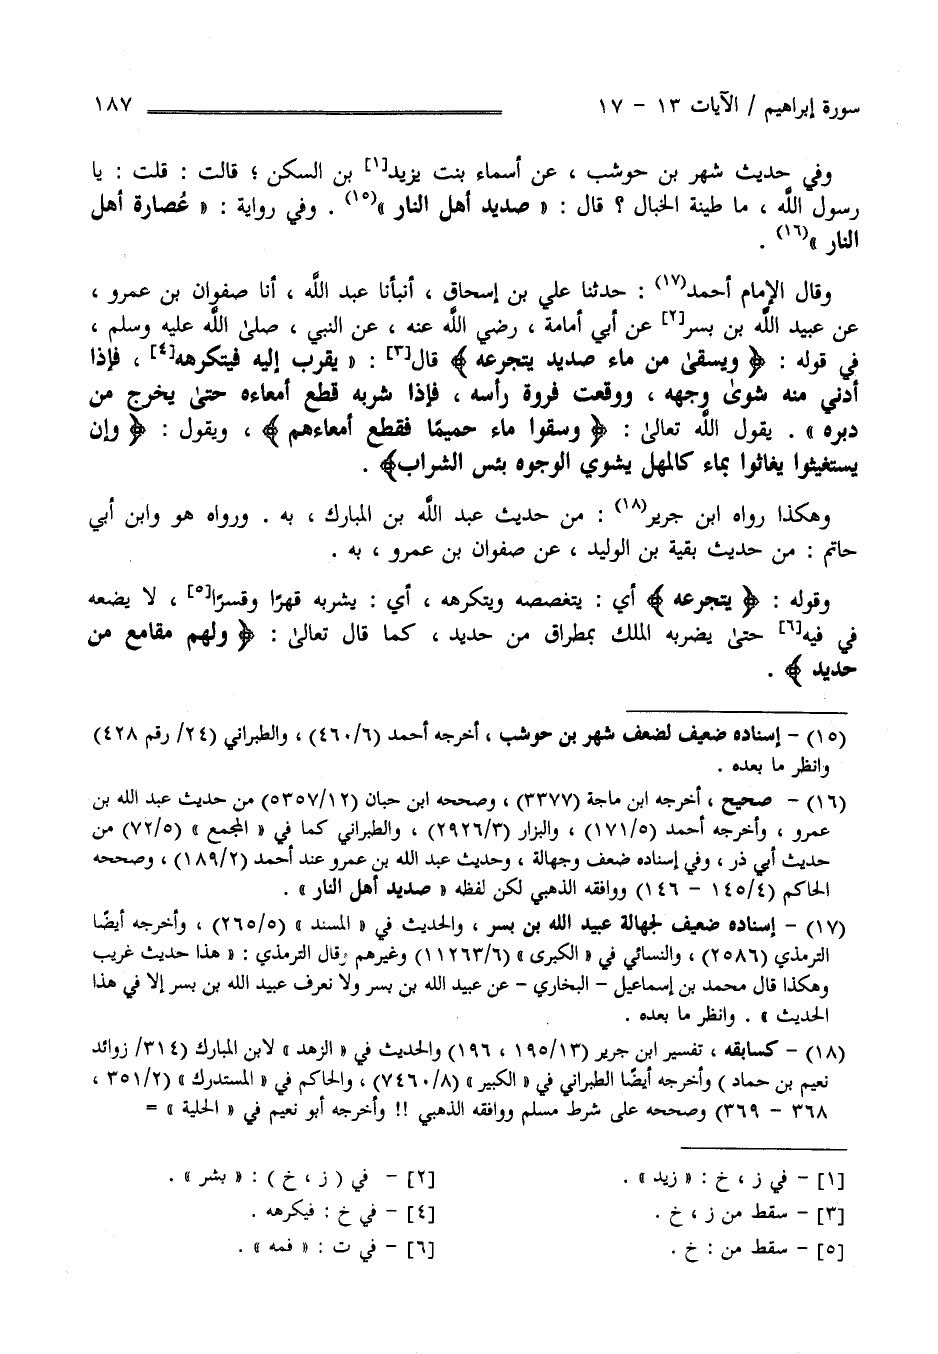 سورة إبراهيم / الآيات ١٣ - ١٧ ١٨٧
وفي حديث شهر بن حوشب ، عن أسماء بنت يزيد[١] بن السكن ؛ قالت : قلت : يا
رسول اللَّه ، ما طينة الخبال ؟ قال : « صديد أهل النار »(١٥) . وفي رواية : « عُصارة أهل
النار »(١٦) .
وقال الإمام أحمد(١٧) : حدثنا علي بن إسحاق ، أنبأنا عبد اللَّه ، أنا صفوان بن عمرو ،
عن عبيد اللَّه بن بسر[٢] عن أبي أمامة ، رضي اللَّه عنه ، عن النبي ، صلىٰ اللَّه عليه وسلم ،
في قوله : ﴿ ويسقىٰ من ماء صديد يتجرعه ﴾ قال[٣] : « يقرب إليه فيتكرهه[٤] ، فإذا
أدني منه شوىٰ وجهه ، ووقعت فروة رأسه ، فإذا شربه قطع أمعاءه حتىٰ يخرج من
دبره » . يقول اللَّه تعالىٰ : ﴿ وسقوا ماء حميمًا فقطع أمعاءهم ﴾ ، ويقول : ﴿ وإن
يستغيثوا يغاثوا بماء كالمهل يشوي الوجوه بئس الشراب﴾ .
وهكذا رواه ابن جرير(١٨) : من حديث عبد اللَّه بن المبارك ، به . ورواه هو وابن أبي
حاتم : من حديث بقية بن الوليد ، عن صفوان بن عمرو ، به .
وقوله : ﴿ يتجرعه ﴾ أي : يتغصصه ويتكرهه ، أي : يشربه قهرًا وقسرًا[٥] ، لا يضعه
في فيه[٦] حتىٰ يضربه الملك بمطراق من حديد ، كما قال تعالىٰ : ﴿ ولهم مقامع من
حديد ﴾ .
(١٥) - إسناده ضعيف لضعف شهر بن حوشب ، أخرجه أحمد (٤٦٠/٦) ، والطبراني (٢٤/ رقم ٤٢٨)
وانظر ما بعده .
(١٦) - صحيح ، أخرجه ابن ماجة (٣٣٧٧) ، وصححه ابن حبان (٥٣٥٧/١٢) من حديث عبد الله بن
عمرو ، وأخرجه أحمد (١٧١/٥) ، والبزار (٢٩٢٦/٣) ، والطبراني كما في « المجمع » (٧٢/٥) من
حديث أبي ذر ، وفي إسناده ضعف وجهالة ، وحديث عبد الله بن عمرو عند أحمد (١٨٩/٢) ، وصححه
الحاكم (١٤٥/٤ - ١٤٦) ووافقه الذهبي لكن لفظه « صديد أهل النار » .
(١٧) - إسناده ضعيف لجهالة عبيد الله بن بسر ، والحديث في « المسند » (٢٦٥/٥) ، وأخرجه أيضًا
الترمذي (٢٥٨٦) ، والنسائي في « الكبرى » (١١٢٦٣/٦) وغيرهم وقال الترمذي : « هذا حديث غريب
وهكذا قال محمد بن إسماعيل - البخاري - عن عبيد الله بن بسر ولا نعرف عبيد الله بن بسر إلا في هذا
الحديث » . وانظر ما بعده .
(١٨) - كسابقه ، تفسير ابن جرير (١٩٥/١٣ ، ١٩٦) والحديث في « الزهد » لابن المبارك (٣١٤/ زوائد
نعيم بن حماد ) وأخرجه أيضًا الطبراني في « الكبير » (٧٤٦٠/٨) ، والحاكم في « المستدرك » (٣٥١/٢ ،
٣٦٨ - ٣٦٩) وصححه على شرط مسلم ووافقه الذهبي !! وأخرجه أبو نعيم في « الحلية » =
[١] - في ز ، خ : « زيد » . [٢] - في ( ز ، خ ) : « بشر » .
[٣] - سقط من ز ، خ . [٤] - في خ : فيكرهه .
[٥] - سقط من : خ . [٦] - في ت : « فمه » .